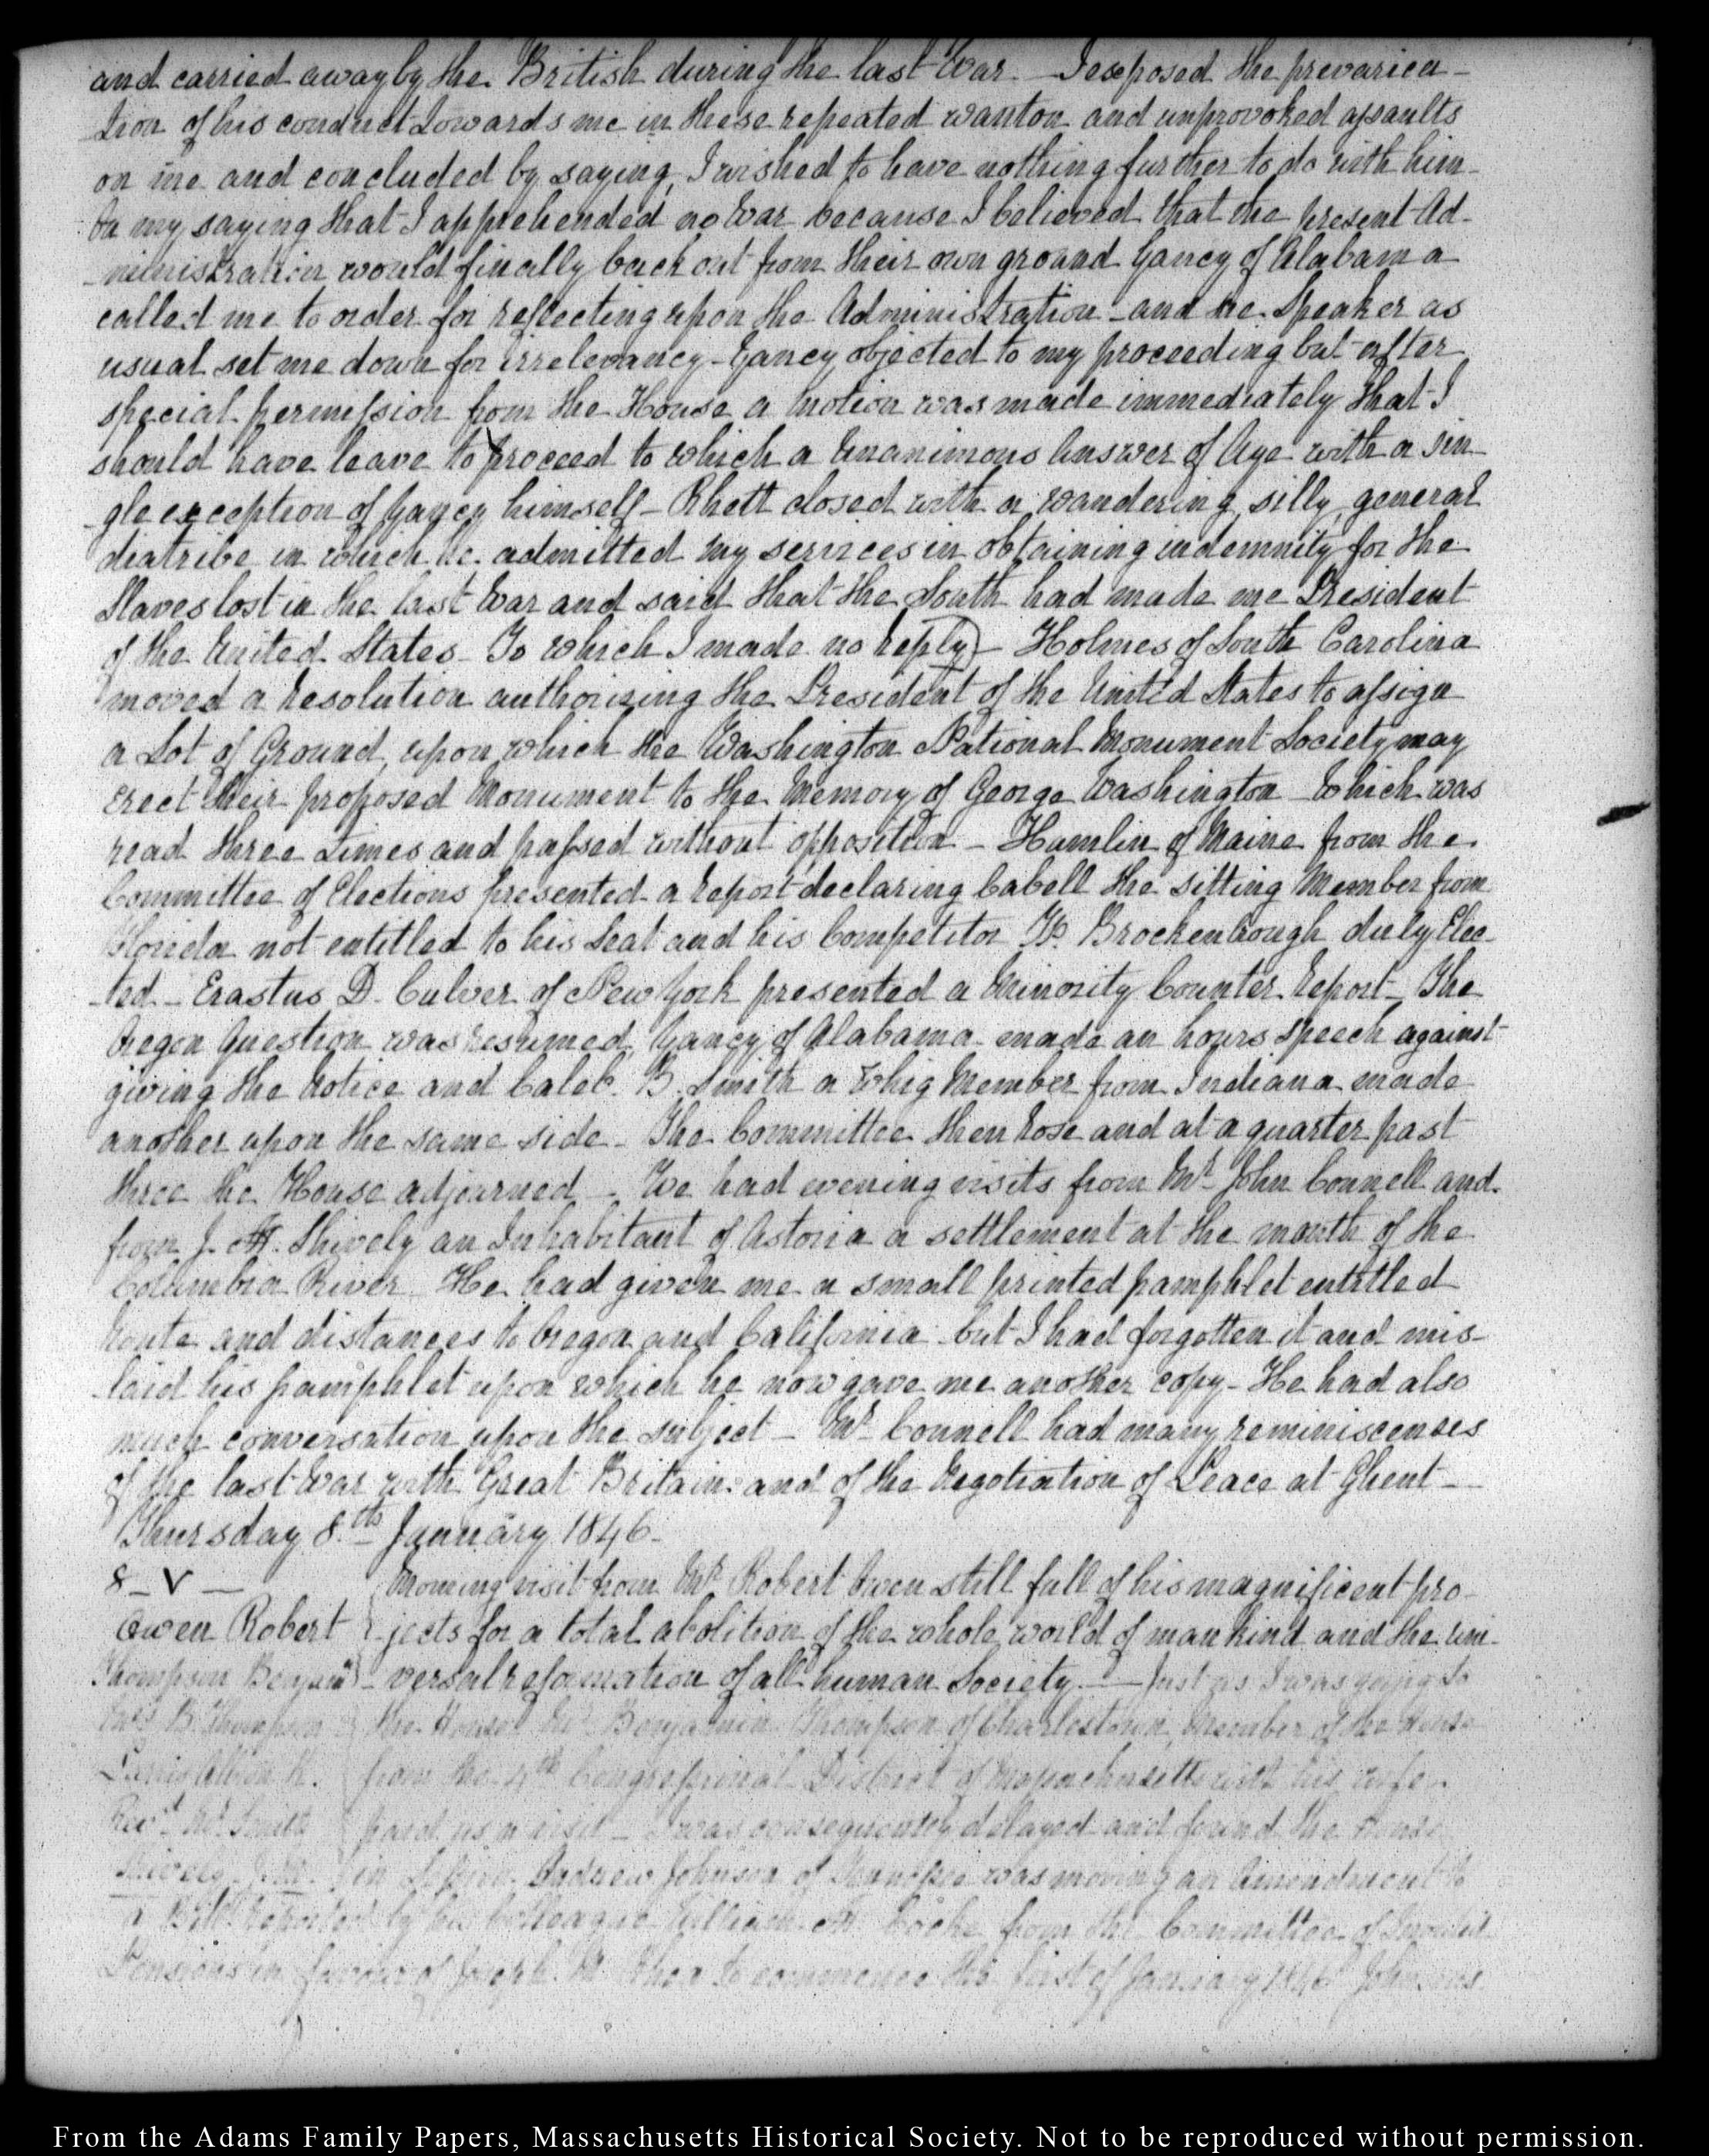 and carried away by the British during the last War. — I exposed the prevarica-
tion of his conduct towards me in these repeated wanton and unprovoked assaults
on me and concluded by saying, I wished to have nothing further to do with him-
On my saying that I apprehended no War because I believed that the present Ad-
-ministration would finally back out from their own ground Yancy of Alabama
called me to order for reflecting upon the Administration - and the Speaker as
usual set me down for irrelevancy - Yancy objected to my proceeding but after
special permission from the House a motion was made immediately that I
should have leave to proceed to which a Unanimous Answer of Aye with a sin-
-gle exception of Yancy himself - Rhett closed with a wandering, silly, general
diatribe in which he admitted my services in obtaining indemnity for the
Slaves lost in the last War and said that the South had made me President
of the United States - To which I made no reply) - Holmes of South Carolina
moved a resolution authorizing the President of the United States to assign
a Lot of Ground, upon which the Washington National Monument Society may
erect their proposed Monument to the Memory of George Washington - Which was
read three times and passed without opposition - Hamlin of Maine from the
Committee of Elections presented a report declaring Cabell the sitting Member from
Florida not entitled to his Seat and his Competitor Brockenbrough duly Elec-
-ted - Erastus D. Culver of New York presented a Minority Counter Report - The
Oregon Question was resumed, Yancy of Alabama made an hours speech against
giving the Notice and Caleb B. Smith a Whig Member from Indiana made
another upon the same side - The Committee then rose and at a quarter past
three the House adjourned - We had evening visits from Mr John Connell and
from J. M. Shively an Inhabitant of Astoria a settlement at the mouth of the
Columbia River - He had given me a small printed pamphlet entitled
Route and distances to Oregon and California - but I had forgotten it and mis-
-laid his pamphlet upon which he now gave me another copy - He had also
much conversation upon the subject - Mr Connell had many reminiscenses
of the last War with Great Britain and of the Negotiation of Peace at Ghent -
Thursday 8th January 1846 -
8 - V - Morning visit from Mr Robert Owen still full of his magnificent pro-
Owen Robert jects for a total abolition of the whole world of mankind and the uni-
Thompson Benjamn -versal reformation of all human Society. — Just as I was going to
Mrs B. Thompson the House Mr Benjamin Thompson of Charlestown, Member of the House
from the 4th Congressional District of Massachusetts with his wife
Revd Mr Smith paid us a visit - I was consequently delayed and found the House
Shively J. M. in Session. Andrew Johnson of Tennessee was moving an Amendment to
a Bill reported by his Colleague William M. Cocke from the Committee of Invalid
Pensions in favour of Joseph to commence the first of January 1846 Johnsons
From the Adams Family Papers, Massachusetts Historical Society. Not to be reproduced without permission.